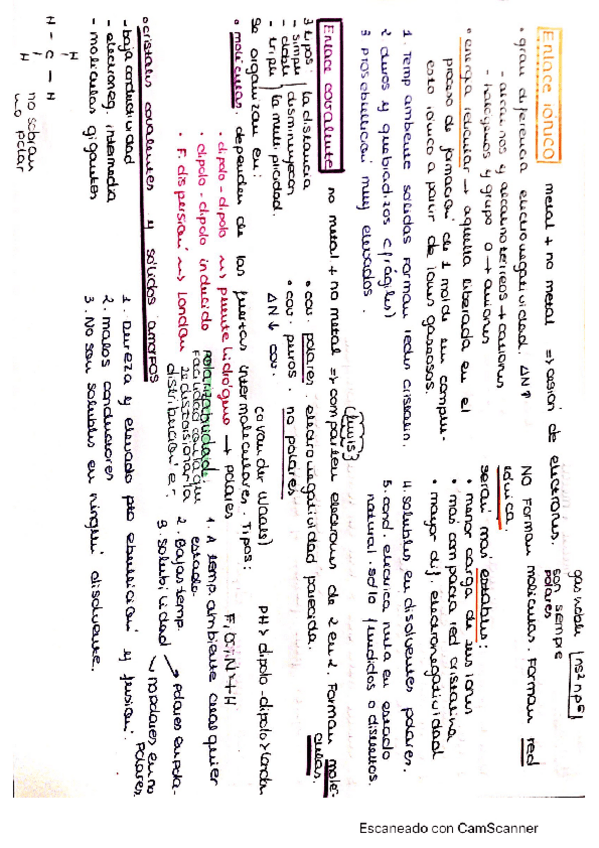 gas noble ns² np⁶
Enlace iónico metal + no metal => cesión de electrones. son siempre polares
• gran diferencia electronegatividad. ΔN↑ NO Forman moléculas. Forman red iónica.
- alcalinos y alcalinotérreos → cationes
- halógenos y grupo 0 → aniones
serán más estables:
• menor carga de sus iones
• más compacta red cristalina
• mayor dif. electronegatividad
• energía reticular → aquella liberada en el
proceso de formación de 1 mol de un compues-
to iónico a partir de iones gaseosos.
1. Temp ambiente sólidas Forman redes cristalin.
2 duros y quebradizos (frágiles)
3 ptos ebullición muy elevados.
4. solubles en disolventes polares.
5. cond. eléctrica nula en estado
natural. sólo fundidos o disueltos.
Lewis
Enlace covalente no metal + no metal => comparten electrones de 2 en 2. Forman molé-
culas.
3 tipos: la distancia
- simple
- doble disminuye con
- triple la multiplicidad.
• cov. polares. electronegatividad parecida.
• cov. puros. no polares
ΔN↓ cov.
Se organizan en:
• moléculas. dependen de las fuerzas intermoleculares. Tipos:
(o van der Waals) PH > dipolo-dipolo > London
• dipolo-dipolo puente hidrógeno → polares F, O, N + H
• dipolo-dipolo inducido
• F. dispersión London
Polarizabilidad:
facilidad con la que
se distorsiona la
distribución e-
1. A temp ambiente cualquier
estado.
2. Bajas temp.
3. solubilidad → polares en pola-
no polares en no polares
• cristales covalentes y sólidos amorfos
- baja conductividad
- electroneg. intermedia
- moléculas gigantes
1. Dureza y elevado pto ebullición y fusión.
2. malos conductores
3. No son solubles en ningún disolvente.
H
H - C - H
H
no sobran
no polar
Escaneado con CamScanner